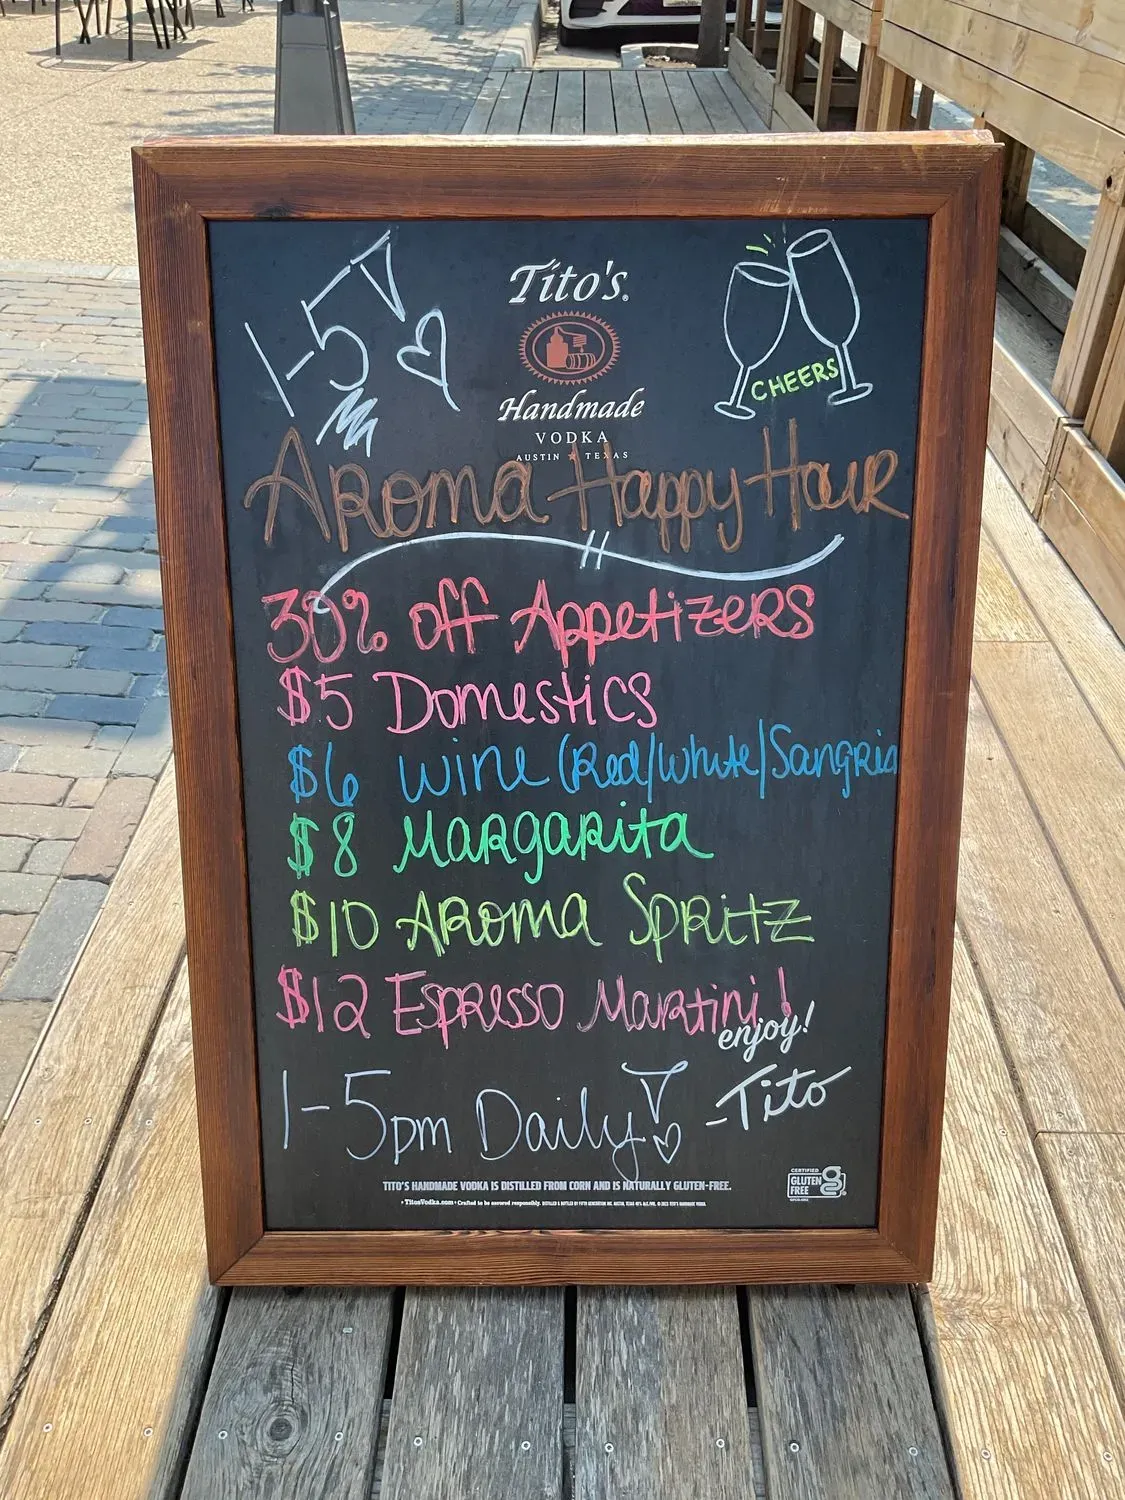 1-5
Tito's®
Handmade
VODKA
AUSTIN ★ TEXAS
CHEERS
AROMA Happy Hour
30% off Appetizers
$5 Domestics
$6 Wine (Red/White/Sangria
$8 Margarita
$10 Aroma Spritz
$12 Espresso Martini!
enjoy!
-Tito
1-5pm Daily!
TITO'S HANDMADE VODKA IS DISTILLED FROM CORN AND IS NATURALLY GLUTEN-FREE.
• TitosVodka.com • Crafted to be savored responsibly.
CERTIFIED
GLUTEN
FREE